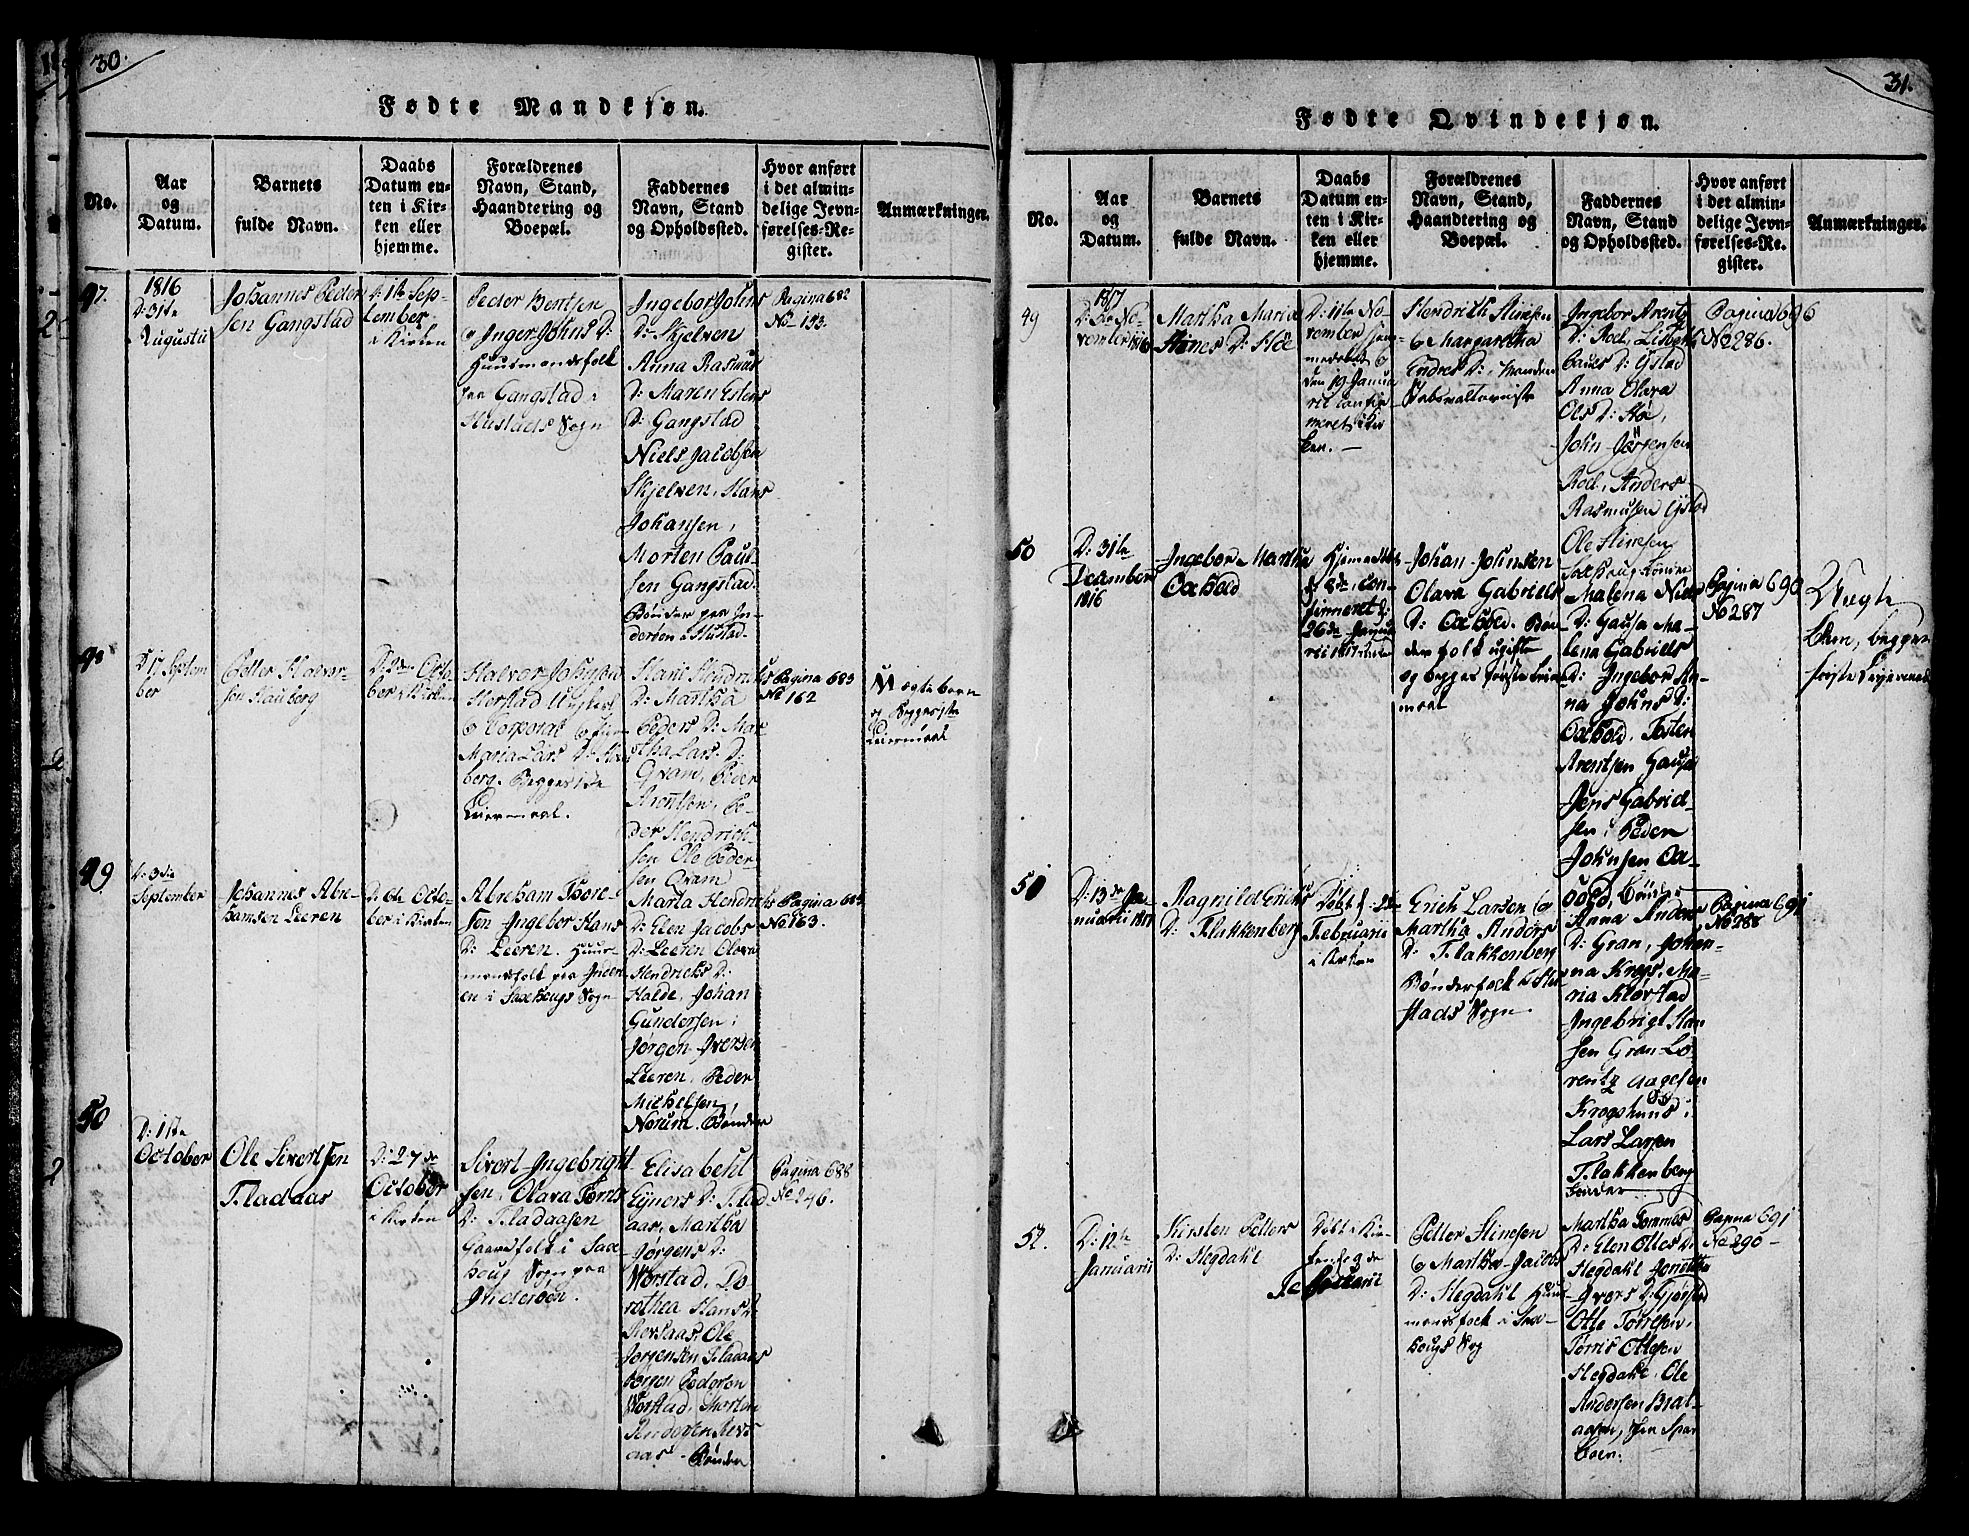 30.
Fødte Mandkjøn.
No.
Aar
og
Datum.
Barnets
fulde Navn.
Daabs
Datum en-
ten i Kir-
ken eller
hjemme.
Forældrenes
Navn, Stand,
Haandtering og
Boepæl.
Faddernes
Navn, Stand
og Opholdssted.
Hvor anført
i det almin-
delige Jevn-
førelses-Re-
gister.
Anmærkninger.
47.
1816
D: 31te
Augustii
Johannes Peder
sen Gangstad
d: 1te Sep-
tember
i Kirken
Peder Bentsen
Inger Johns D:
Huusmandsfolk
paa Gangstad i
Hustads Sogn
Ingebor Johns
D: Skjelven
Anna Rasmus
D: Maren Estens
D: Gangstad
Niels Jacobsen
Skjelven, Hans
Johansen,
Morten Paul-
sen Gangstad.
Bønder paa In-
derøen i Hustad
Pagina 682
No 153.
48
D: 1te Septem
ber
Petter Halvor
sen Stauberg
ber i Kirken
Halvor Johnsen
Corporal
Maria Lars D:
berg. Begges 1ste
Leiermaal.
Marit Hendrichs
D: Martha
Peders D: Mar
tha Lars D:
Qvam, Peder
Arentsen, Pe-
der Hendrich-
sen Ole Peder
sen Qvam
Pagina 683
No 162
Uægte barn
og Begges 1ste
Leiermaal
49
D: 3die
September
Johannes Abra
hamsen Leeren
D: 6te Octo-
ber i Kirken
Abraham Thore-
sen Ingebor Hans
D: Leeren. Huus-
mandsfolk paa Inder
øen i Saxhougs Sogn
Marta Hendrichs
D: Elen Jacobs
D: Leeren Olava
Hendrichs D:
Halde, Johan
Gundersen,
Jørgen Iversen
Leeren, Peder
Michelsen,
Norum. Bønder
Pagina 683
No 163.
50
D: 1ste
October
Ole Sivertsen
Fladaas
D: 27de
October
i Kirken
Sivert Ingebrigt
sen, Olava Tørris
D: Fladaasen
Gaardfolk i Saxe
houg Sogn paa
Inderøen.
Elisabeht
Ejners D: Flad
aas, Martha
Jørgens D:
Worstad, Do
rothea Hans D:
Ole
Jørgensen Fladaas
Jørgen Pedersen
Worstad, Morten
Andersen
aas - Bønder
Pagina 688
No 246.
31.
Fødte Qvindekjøn.
No.
Aar
og
Datum.
Barnets
fulde Navn.
Daabs
Datum en-
ten i Kir-
ken eller
hjemme.
Forældrenes
Navn, Stand,
Haandtering og
Boepæl.
Faddernes
Navn, Stand
og Opholdssted.
Hvor anført
i det almin-
delige Jevn-
førelses-Re-
gister.
Anmærkninger.
49
1817
vember 1816
Martha Maria
D: 11te No-
vember hjem-
medøbt
den 19 Janua
rii confir
meret i Kir
ken.
Hendrich Stinesen
Margaretha
Endres D:
Ingebor Arentz
D: Roel, Lisbeth
Pauls D: Ystad
Anna Olava
Ols D:
John Jørgensen
Roel, Anders
Rasmusen Ystad
Ole Stinesen
Pagina 696
No 286.
50
D: 31te
December
1816
Ingebor Martha
Oxhold
Hjemmedøbt
confirmeret
26de Janua
rii 1817
Johan Johnsen
Olava Gabriels
D: Oxhold. Bøn-
derfolk ugifte
og begges første Leier
maal
Malena Niels
D: Gausa Ma-
lena Gabriels
D: Ingebor An-
na Johns D:
Oxhold, Tosten
Arentsen Gausa
Jens Gabriel-
sen, Peder
Johnsen Ox-
hold, Bønder
Pagina 690
No 287
Uægte
barn, begges
første Leiermaal
51
D: 13de Ja-
nuarii 1817
Ragnild Erichs
D: Flakkenberg
Døbt d: 2de
Februarii
i Kirken
Erich Larsen
Martha Anders
D: Flakkenberg
Bønderfolk i Hu-
stads Sogn.
Anna Anders
D: Gran, Johan-
na Krogs, Ma-
ria Klørstad
Ingebrigt Han
sen Gran Lo-
rentz Aagesen
Krogshuus,
Lars Larsen
Flakkenberg
Bønder
Pagina 691
No 288
52.
D: 12te
Januarii
Kirsten Petters
D: Hegdahl
Døbt i Kir-
ken d: 9de
Februarii
Petter Stinesen
Martha Jacobs
D: Hegdahl Huus-
mandsfolk i Saxe-
hougs Sog
Martha Tommes
D: Elen Ottes D:
Hegdahl
Ivers D:
Otte Tørresen,
Tørris Ottesen
Hegdahl, Ole
Andersen Brat-
aasen,
Pagina 691
No 290